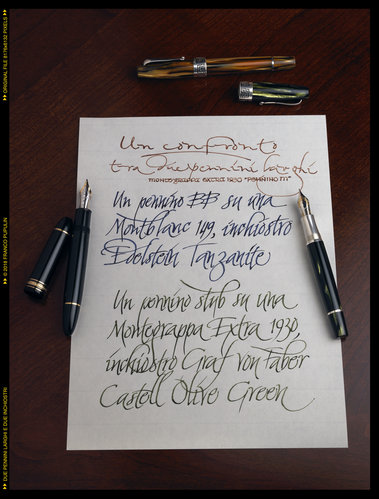 Un confronto
tra due pennini larghi
MONTEGRAPPA EXTRA 1930 "PENNINO M"
Un pennino BB su una
Montblanc 149, inchiostro
Edelstein Tanzanite
Un pennino stub su una
Montegrappa Extra 1930,
inchiostro Graf von Faber
Castell Olive Green
ORIGINAL FILE 8176x6132 PIXELS
© 2018 FRANCO PUPULIN
DUE PENNINI LARGHI E DUE INCHIOSTRI